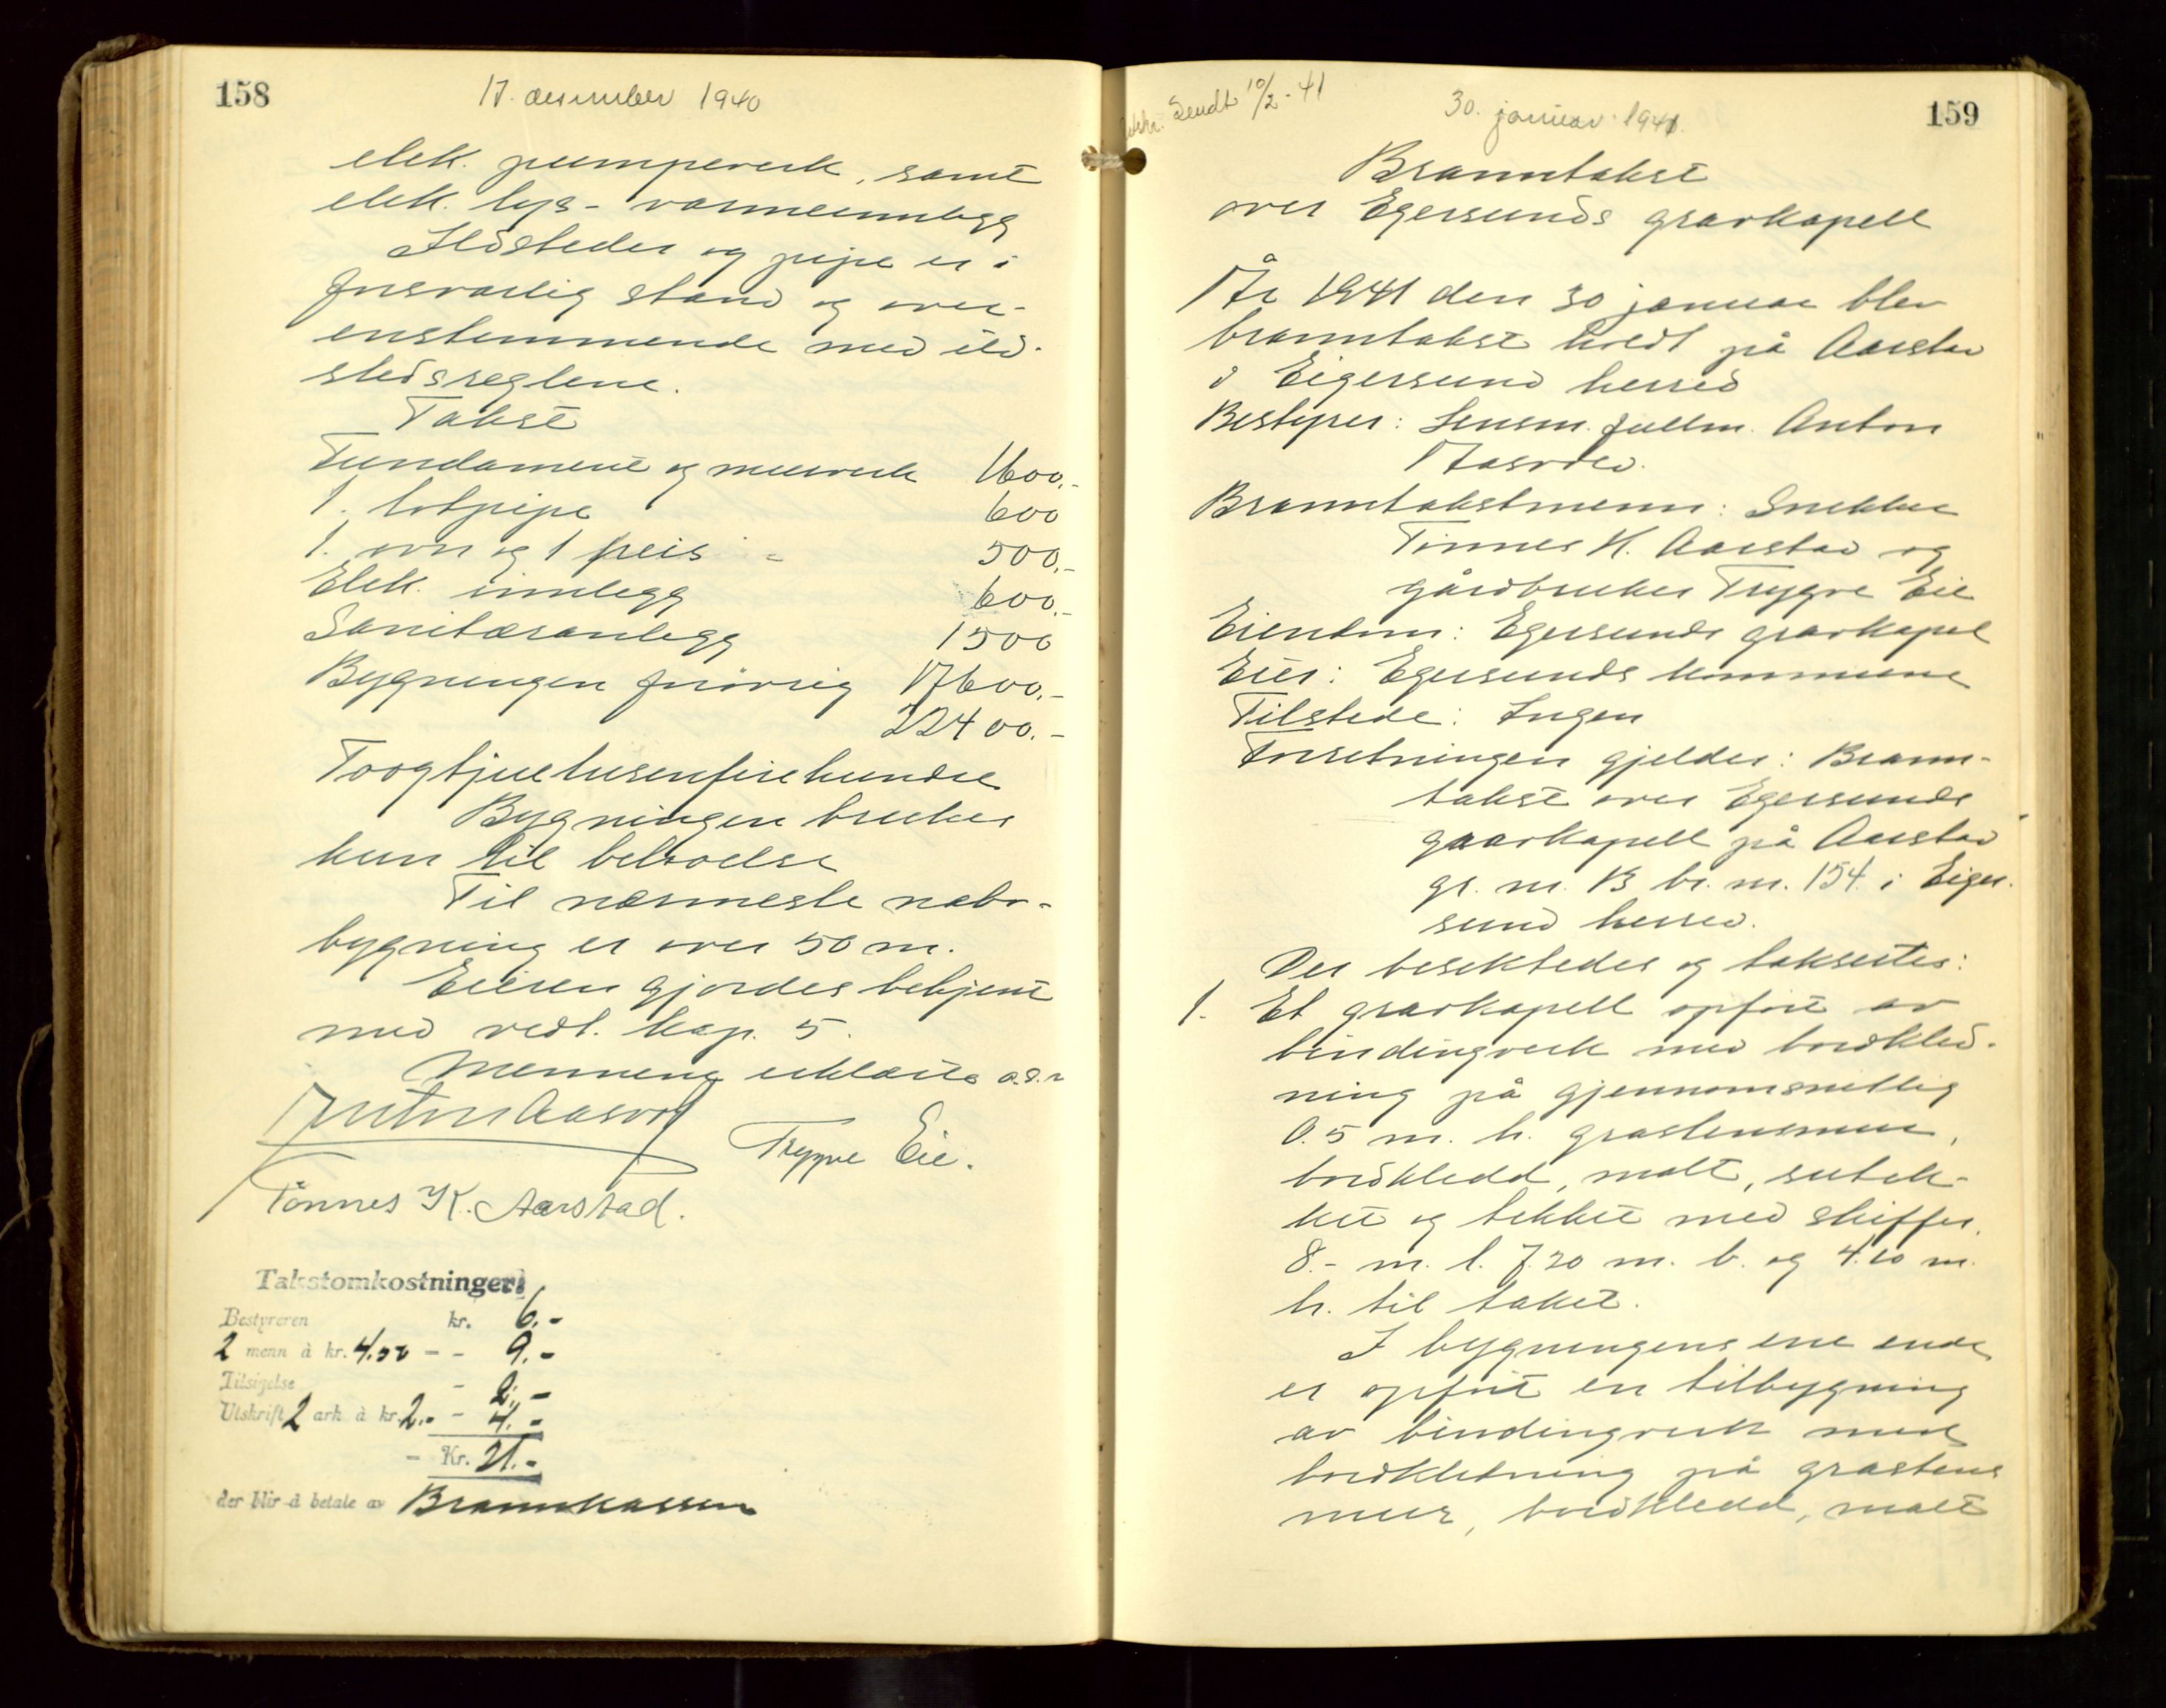 158
17. desember 1940
elek. pumpeverk, samt
elek. lys- varmeinnlegg
Ildsteder og pipe er i
forsvarlig stand og over-
enstemmende med ild-
stedsreglene.
Takst
Fundament og murverk 1600.-
1. lotpipe 600
1. ovn og 1 peis - 500.-
Elek. innlegg 600.-
Sanitæranlegg 1500
Bygningen forøvrig 17600.-
22400.-
Toogtjuetusenfirehundre
Bygningen brukes
kun til beboelse
Til nærmeste nabo-
bygning er over 50 m.
Eieren gjordes bekjent
med vedt. kap. 5.
Mennene erklærte o.s.v
Anton Aasvold
Trygve Eie.
Tönnes K. Aarstad.
Takstomkostninger:
Bestyreren kr. 6.-
2 menn à kr. 4.50 - - 9.-
Tilsigelse - 2.-
Utskrift 2 ark à kr. 2.- - 4.-
- Kr. 21.-
der blir å betale av Brannkassen
Utskr. Sendt 10/2-41
30. januar 1941.
159
Branntakst
over Egersunds gravkapell
År 1941 den 30 januar blev
branntakst holdt på Aarstad
i Eigersund herred
Bestyrer: Lensm. fullm. Anton
Aasvold.
Branntakstmenn: Snekker
Tönnes K. Aarstad og
gårdbruker Trygve Eie
Eiendom: Egersunds gravkapel
Eier: Egersunds kommune
Tilstede: Ingen
Forretningen gjelder: Brann-
takst over Egersunds
gravkapell på Aarstad
gr. nr. 13 br. nr. 154 i Eiger-
sund herred.
Der besiktedes og takserte:
1. Et gravkapell opført av
bindingverk med bordkled-
ning på gjennomsnittlig
0.5 m. h. gråstensmur,
bordkledd, malt, sutek-
ket og tekket med skiffer.
8.- m. l. 7.20 m. b. og 4.20 m.
h. til taket.
I bygningens ene ende
er opført en tilbygning
av bindingverk med
bordkledning på gråstens
mur, bordkledd, malt